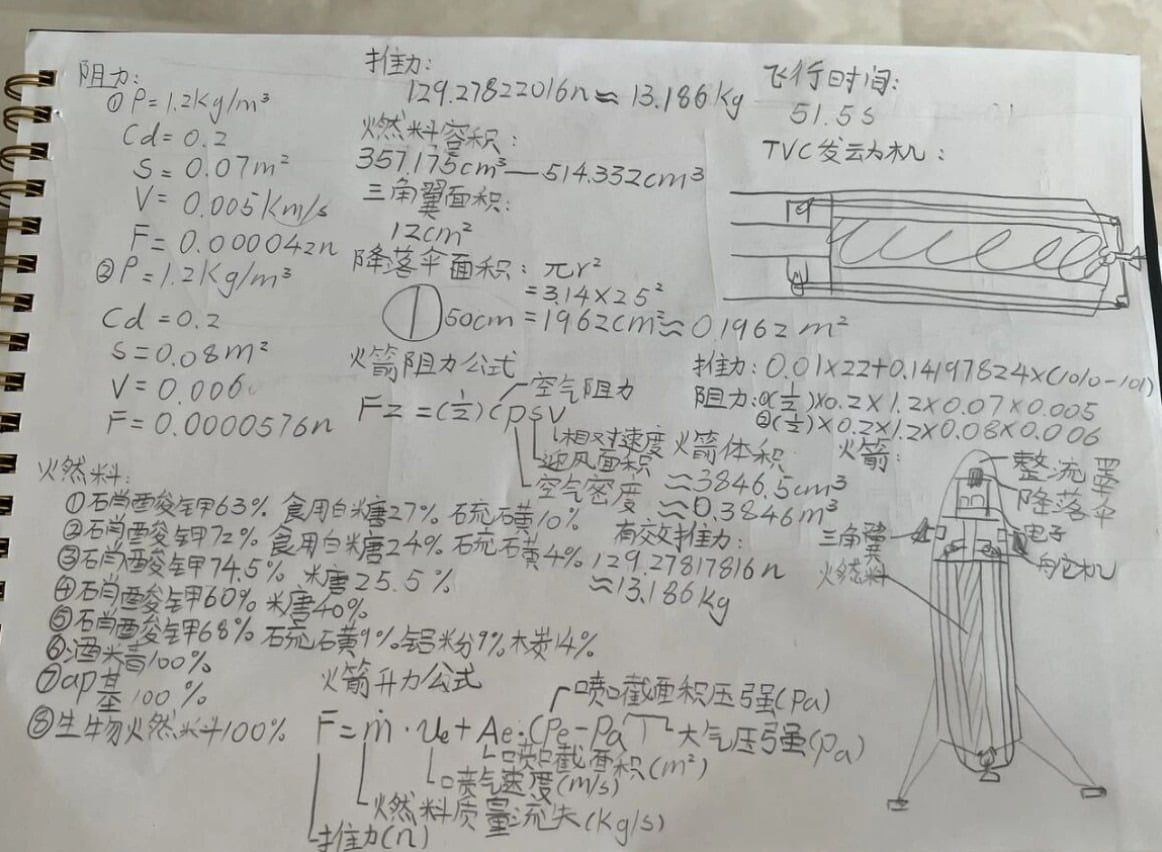 阻力:
①ρ=1.2kg/m³
Cd=0.2
S=0.07m²
V=0.005km/s
F=0.000042n
②ρ=1.2kg/m³
Cd=0.2
S=0.08m²
V=0.006
F=0.0000576n
推力:
129.27822016n≈13.186kg
燃料容积:
357.175cm³—514.332cm³
三角翼面积:
12cm²
降落伞面积:πr²
=3.14×25²
50cm=1962cm²≈0.1962m²
飞行时间:
51.5s
TVC发动机:
火箭阻力公式
空气阻力
Fz=(½)CρSV
相对速度
迎风面积
空气密度
推力:0.01×22+0.14197824×(1010-101)
阻力:①(½)×0.2×1.2×0.07×0.005
②(½)×0.2×1.2×0.08×0.006
火箭体积
≈3846.5cm³
≈0.3846m³
有效推力:
129.27817816n
≈13.186kg
火箭:
整流罩
降落伞
电子
舵机
三角翼
燃料
燃料:
①硝酸钾63% 食用白糖27% 硫磺10%
②硝酸钾72% 食用白糖24% 硫磺4%
③硝酸钾74.5% 糖25.5%
④硝酸钾60% 糖40%
⑤硝酸钾68% 硫磺9% 铝粉9% 木炭14%
⑥酒精100%
⑦ap基100%
⑧生物燃料100%
火箭升力公式
喷口截面积压强(Pa)
F=ṁ·Ue+Ae·(Pe-Pa
大气压强(pa)
喷口截面积(m²)
喷气速度(m/s)
燃料质量流失(kg/s)
推力(n)